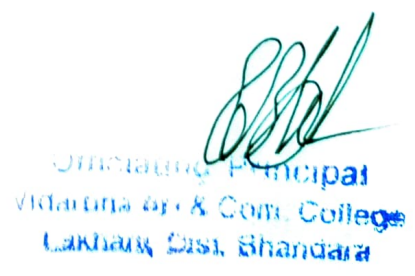 Officiating Principal
Vidarbha Art & Com. College
Lakhani, Dist. Bhandara